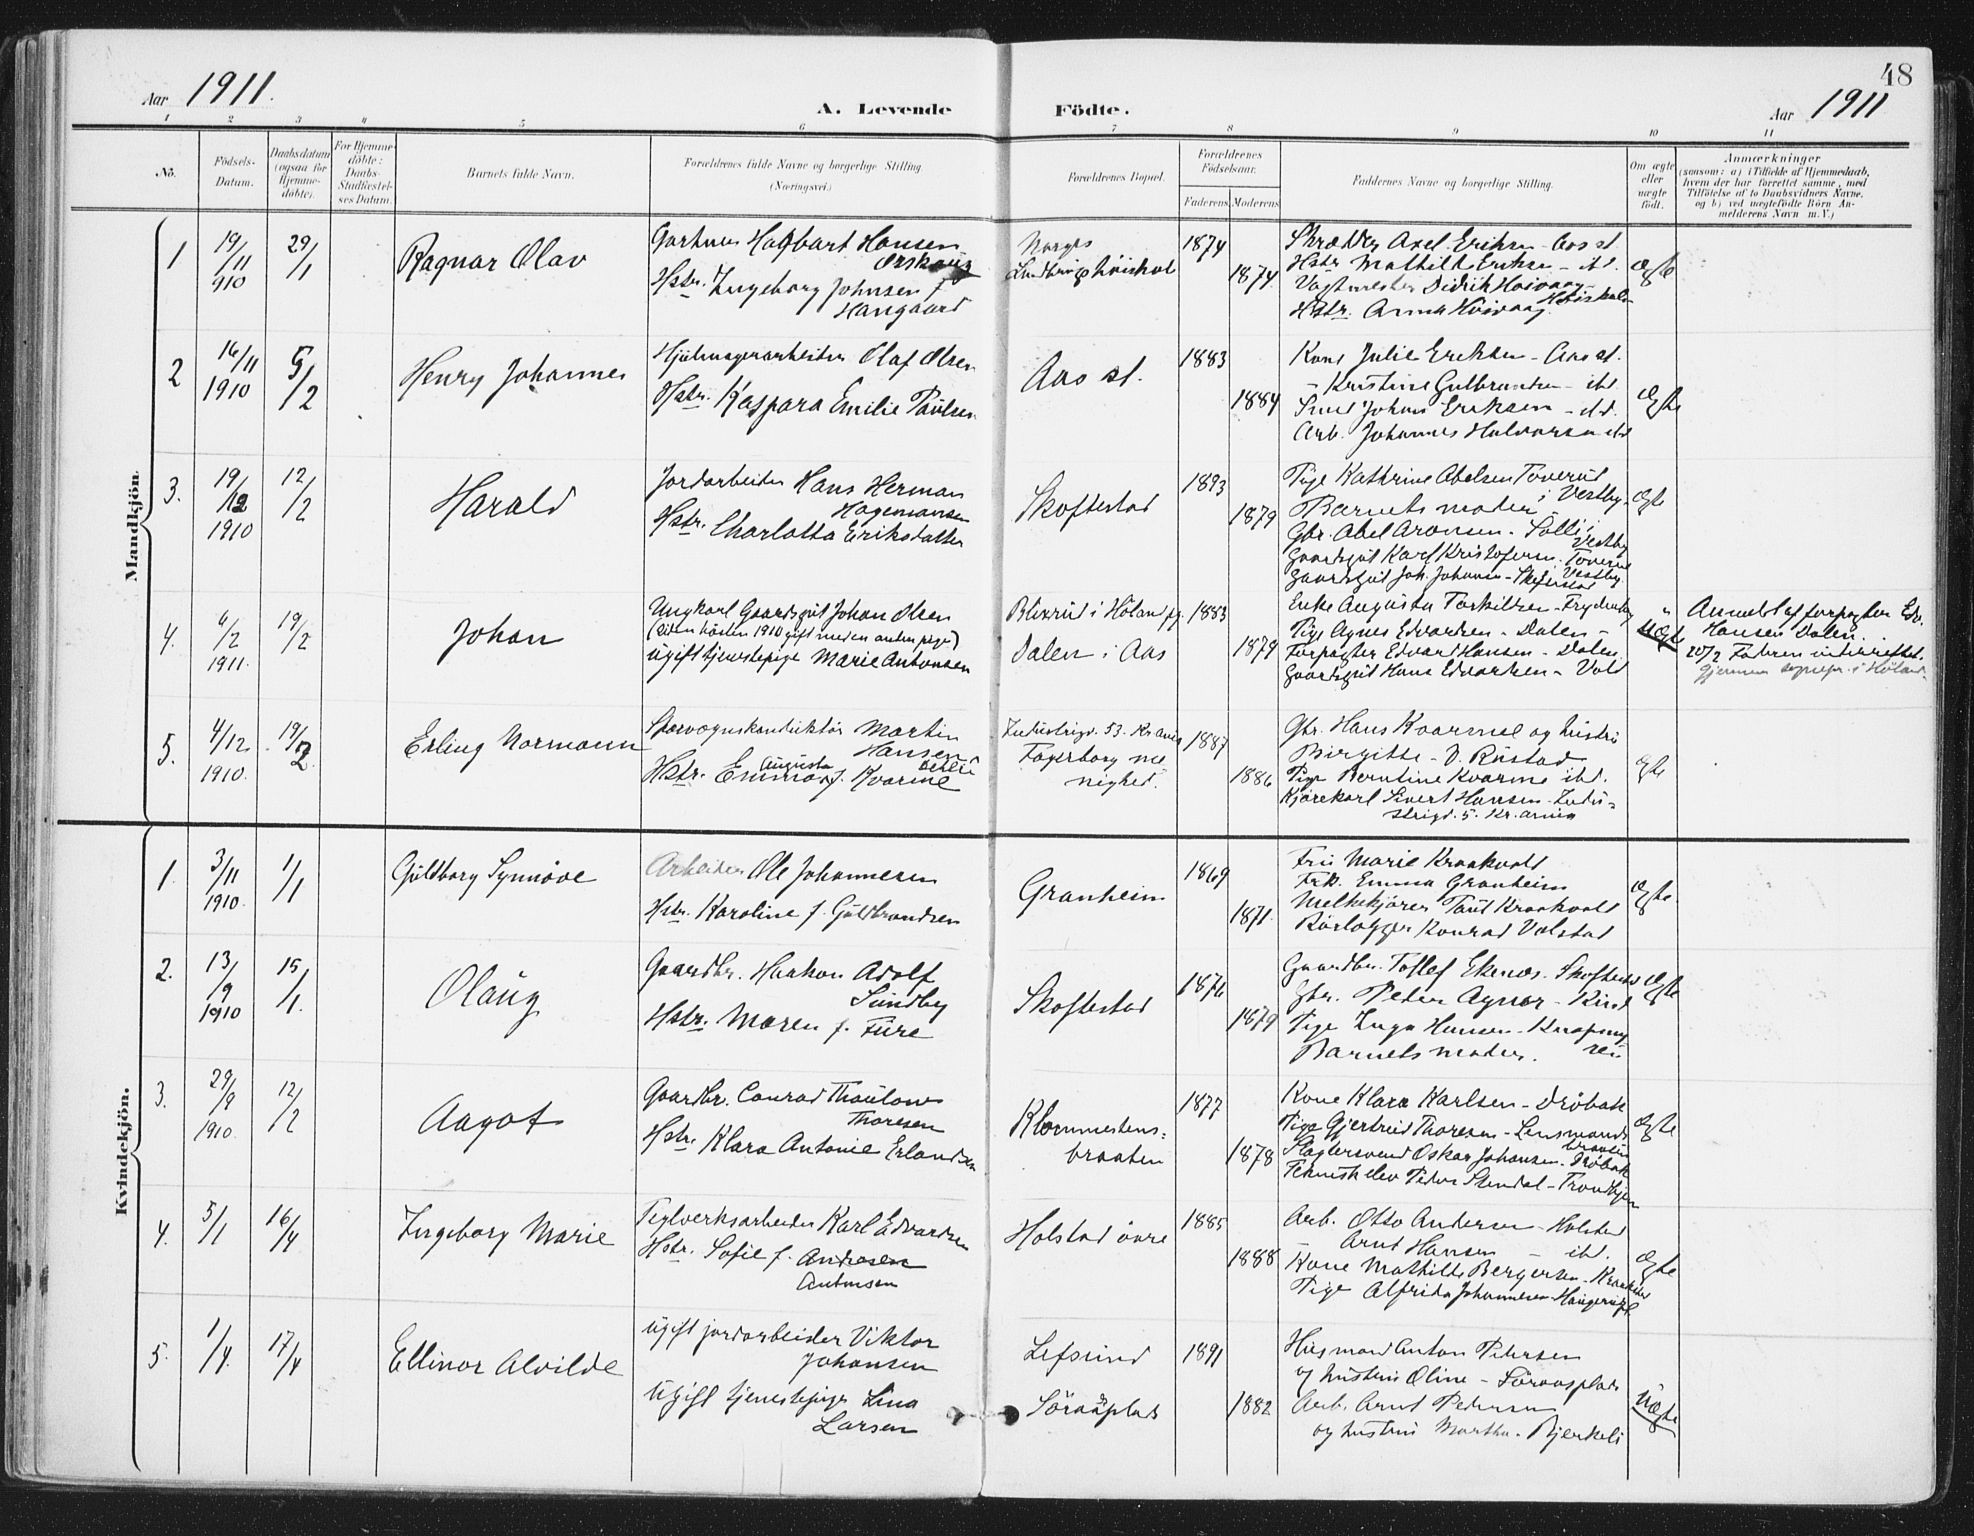 48
Aar 1911.
A. Levende Födte.
Aar 1911
1 2 3 4 5 6 7 8 9 10 11
No.
Födsels-
Datum.
Daabsdatum
(ogsaa for
Hjemme-
döbte).
For Hjemme-
döbte:
Daabs-
Stadfæstel-
ses Datum.
Barnets fulde Navn.
Forældrenes fulde Navne og borgerlige Stilling.
(Næringsvei.)
Forældrenes Bopæl.
Forældrenes
Födselsaar.
Faderens. Moderens
Faddernes Navne og borgerlige Stilling.
Om ægte
eller
uægte
födt.
Anmærkninger
(saasom: a) i Tilfælde af Hjemmedaab,
hvem der har forrettet samme, med
Tilföielse af to Daabsvidners Navne,
og b) ved uægtefödte Börn An-
melderens Navn m. V.)
Mandkjön.
1
19/11
910
29/1
Ragnar Olav
Gartner Hagbart Hansen
Hstr. Ingeborg Johnsen f.
Haugaard
Norges
Landbrugshöiskole
1874
1874
Skrædder Axel Eriksen - Aas st.
Hstr. Mathilde Eriksen - ibd.
Vagtmester Didrik Hoivaag -
Höiskolen
Hstr. Anna Höivaag
Ægte
2
16/11
1910
5/2
Henry Johannes
Hjulmagerarbeider Olaf Olsen
Hstr. Kaspara Emilie Paulsen
Aas st.
1883
1884
Kone Julie Eriksen - Aas st.
- Kristine Gulbrandsen - ibd
Smed Johans Eriksen - ibd.
Arb. Johannes Halvorsen ibd
Ægte
3.
19/12
1910
12/2
Harald
Jordarbeider Hans Herman
Hagemansen
Hstr. Charlotta Eriksdatter
Skoftestad
1893
1879
Pige Kathrine Abelsen Toverud
i Vestby.
Barnets moder
Gbr. Abel Aronsen - Solli i
Vestby
Gaardsgut Karl Kristofersen. Toverud
Vestby.
Gaardsgut Joh. Johansen - Skofterstad
Ægte
4.
6/2
1911.
19/2
Johan
Ungkarl Gaardsgut Johan Olsen
(siden hösten 1910 gift med en anden pige)
ugift tjenestepige Marie Antonsen
Blixrud i Höland pg.
Dalen i Aas
1883
1879
Enke Augusta Torkildsen - Frydenberg
Pige Agnes Edvardsen - Dalen -
Forpagter Edvard Hansen - Dalen.
Gaardsgut Hans Edvardsen - Vold
Uægte
Anmeldt af forpagter Edv.
Hansen Dalen.
20/2 Faderen underrettet.
Gjennem sognepr. i Höland.
5.
4/12
1910.
19/2
Erling Normann
Sporvognskonduktör Martin
Hansen
Hstr. Emma Augusta f. Kvarme
Industrigd. 53. Kr.ania
Fagerborg me-
nighed.
1887
1886
Gbr. Hans Kvarme og hustru
Birgitte - V. Rustad
Pige Berntine Kvarme ibd.
Kjörekarl Sivert Hansen - Indu-
strigd. 5. Kr.ania
Ægte
Kvindekjön.
1.
3/11
1910.
1/1
Guldborg Synnöve
Arbeider Ole Johannesen
Hstr. Karoline f. Guldbrandsen
Granheim
1869
1871.
Fru Marie Kraakvold
Frk. Emma Granheim
Melkekjörer Tarit Kraakvold
Rörlægger Konrad Volstad
Ægte
2.
13/9
1910
15/1.
Olaug
Gaardbr. Haakon Adolf
Sundby
Hstr. Maren f. Fure
Skoftestad
1876
1879
Gaardbr. Tollef Ekenæs - Skoftestad
Gbr. Peder Agnor - Kind
Pige Inga Hansen -
Barnets moder.
Ægte
3.
29/9
1910.
12/2
Aagot
Gaardbr. Conrad Thaulow
Thoresen
Hstr. Klara Antonie Erlandsen
Klommestens-
braaten
1877
1878
Kone Klara Karlsen - Dröbak
Pige Gjertrud Thoresen - Lensmands
braaten
Slagtersvend Oskar Johansen - Dröbak
Teknisk elev Peder Stendal - Trondhjem
Ægte
4.
5/1
16/4
Ingeborg Marie
Teglverksarbeider Karl Edvardsen
Hstr. Sofie f. Andresen
Antonsen
Holstad övre
1885
1888
Arb. Otto Andersen - Holstad
Arnt Hansen - ibd.
Kone Mathilde Bergersen -
Pige Alfrida Johannesen
Ægte
5.
1/4.
17/4
Ellinor Alvilde
Ugift jordarbeider Viktor
Johansen
Ugift tjenestepige Lina
Larsen
Lefsrud
Söraasplads
1891
1882
Husmand Anton Petersen
og hustru Oline - Söraasplads
Arb. Arnt Petersen
og hustru Martha - Bjerkeli
Uægte